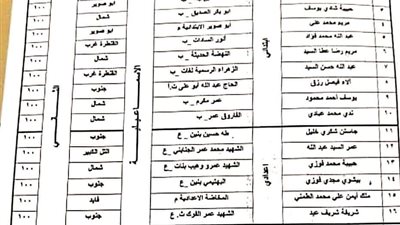 ٣ حبيبة شادي يوسف أبو بكر الصديق _ ب أبو صوير ١٠٠
٤ مريم محمد على أبو صوير الابتدائية م شمال ١٠٠
٥ عبد الله محمد فؤاد أنور السادات _ ب أبو صوير ١٠٠
٦ مريم رضا عطا السيد النهضة الحديثة _ ب القنطرة غرب ١٠٠
٧ عبد الله حسن السيد الزهراء الرسمية لغات _ ب القنطرة غرب ١٠٠
٨ آلاء فيصل رزق الحاج عبد الله أبو على ت.أ جنوب ١٠٠
٩ يوسف أحمد محمود عمر مكرم _ ب شمال ١٠٠
١٠ ندي محمد عبادي الفاروق عمر _ ب شمال ١٠٠
ابتدائي
الاسماعيلية
١١ جاستن شكري خليل طه حسين بنين _ ع جنوب ١٠٠
١٢ عمر السيد عبد الله الشهيد محمد عمر الجنايني _ ع التل الكبير ١٠٠
١٣ حبيبة محمد فوزي الشهيد عمرو وهيب بنات _ ع شمال ١٠٠
١٤ بيشوي مجدي فوزي البهتيمي بنين _ ع جنوب ١٠٠
١٥ ملك أيمن على محمد الطمنى المخاضة الاعدادية م فايد ١٠٠
١٦ شريفة شريف عبد الشهيد عمر الفرك ث.ع جنوب ١٠٠
اعدادي